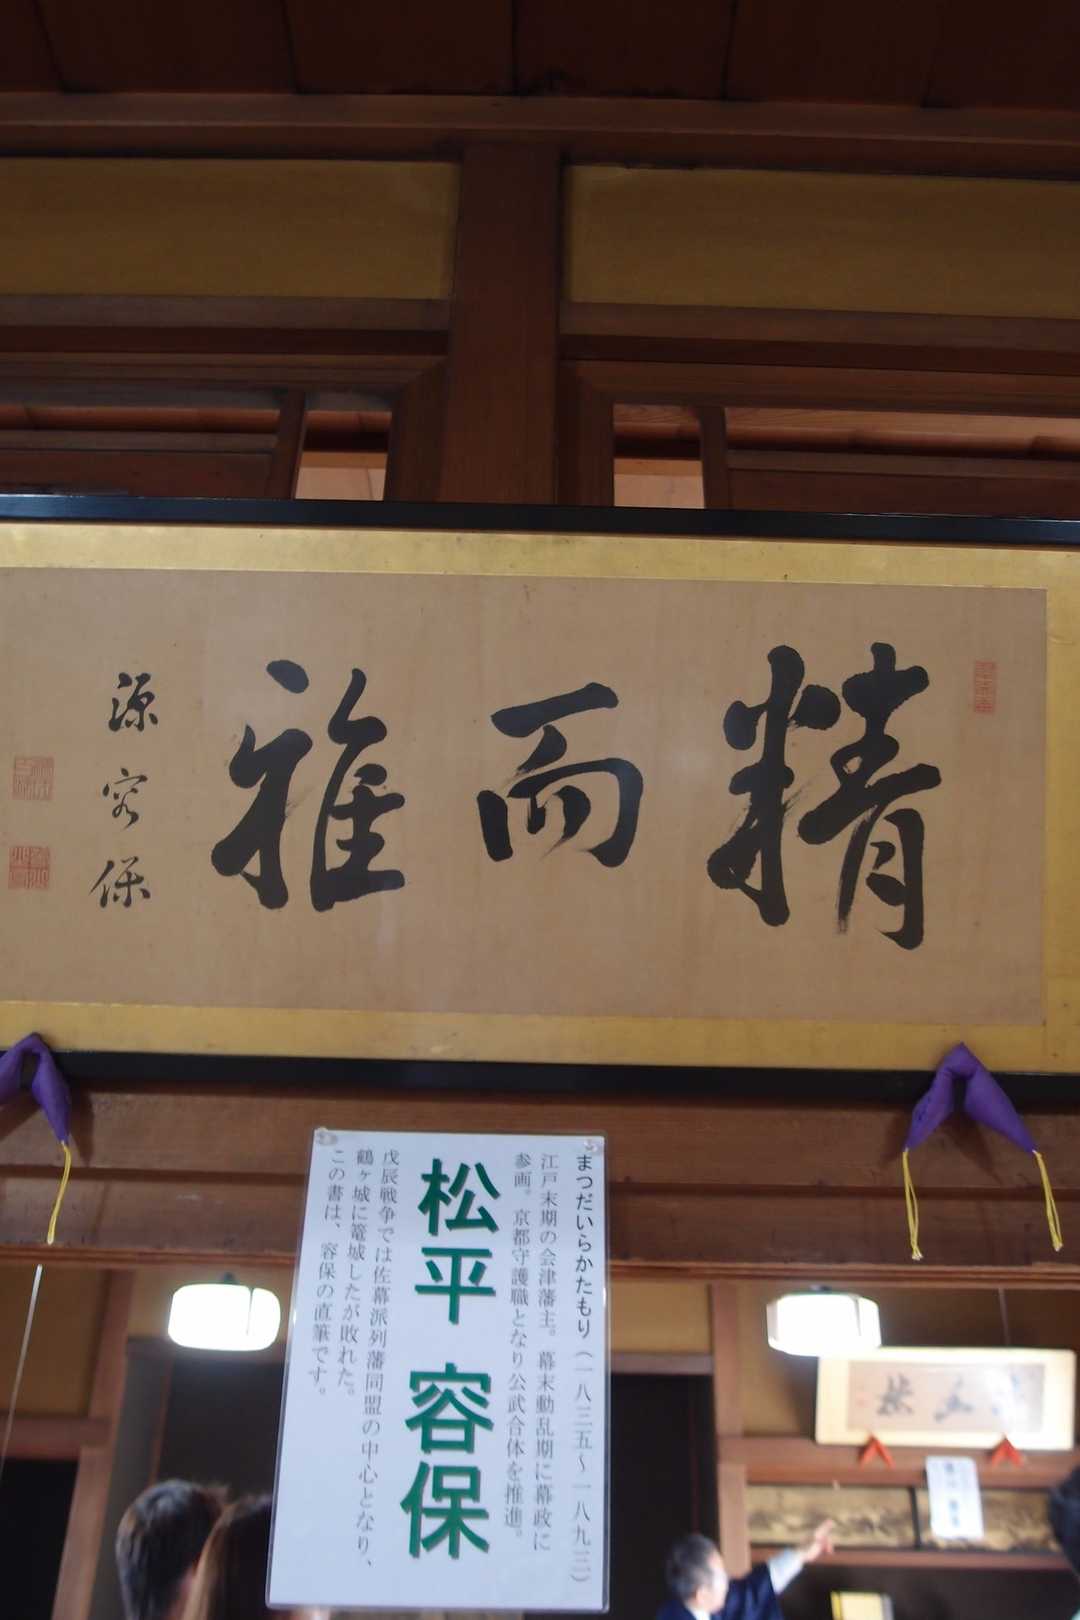 精而雅
源容保
まつだいらかたもり（一八三五～一八九三）
江戸末期の会津藩主。幕末動乱期に幕政に
参画。京都守護職となり公武合体を推進。
松平 容保
戊辰戦争では佐幕派列藩同盟の中心となり、
鶴ヶ城に篭城したが敗れた。
この書は、容保の直筆です。